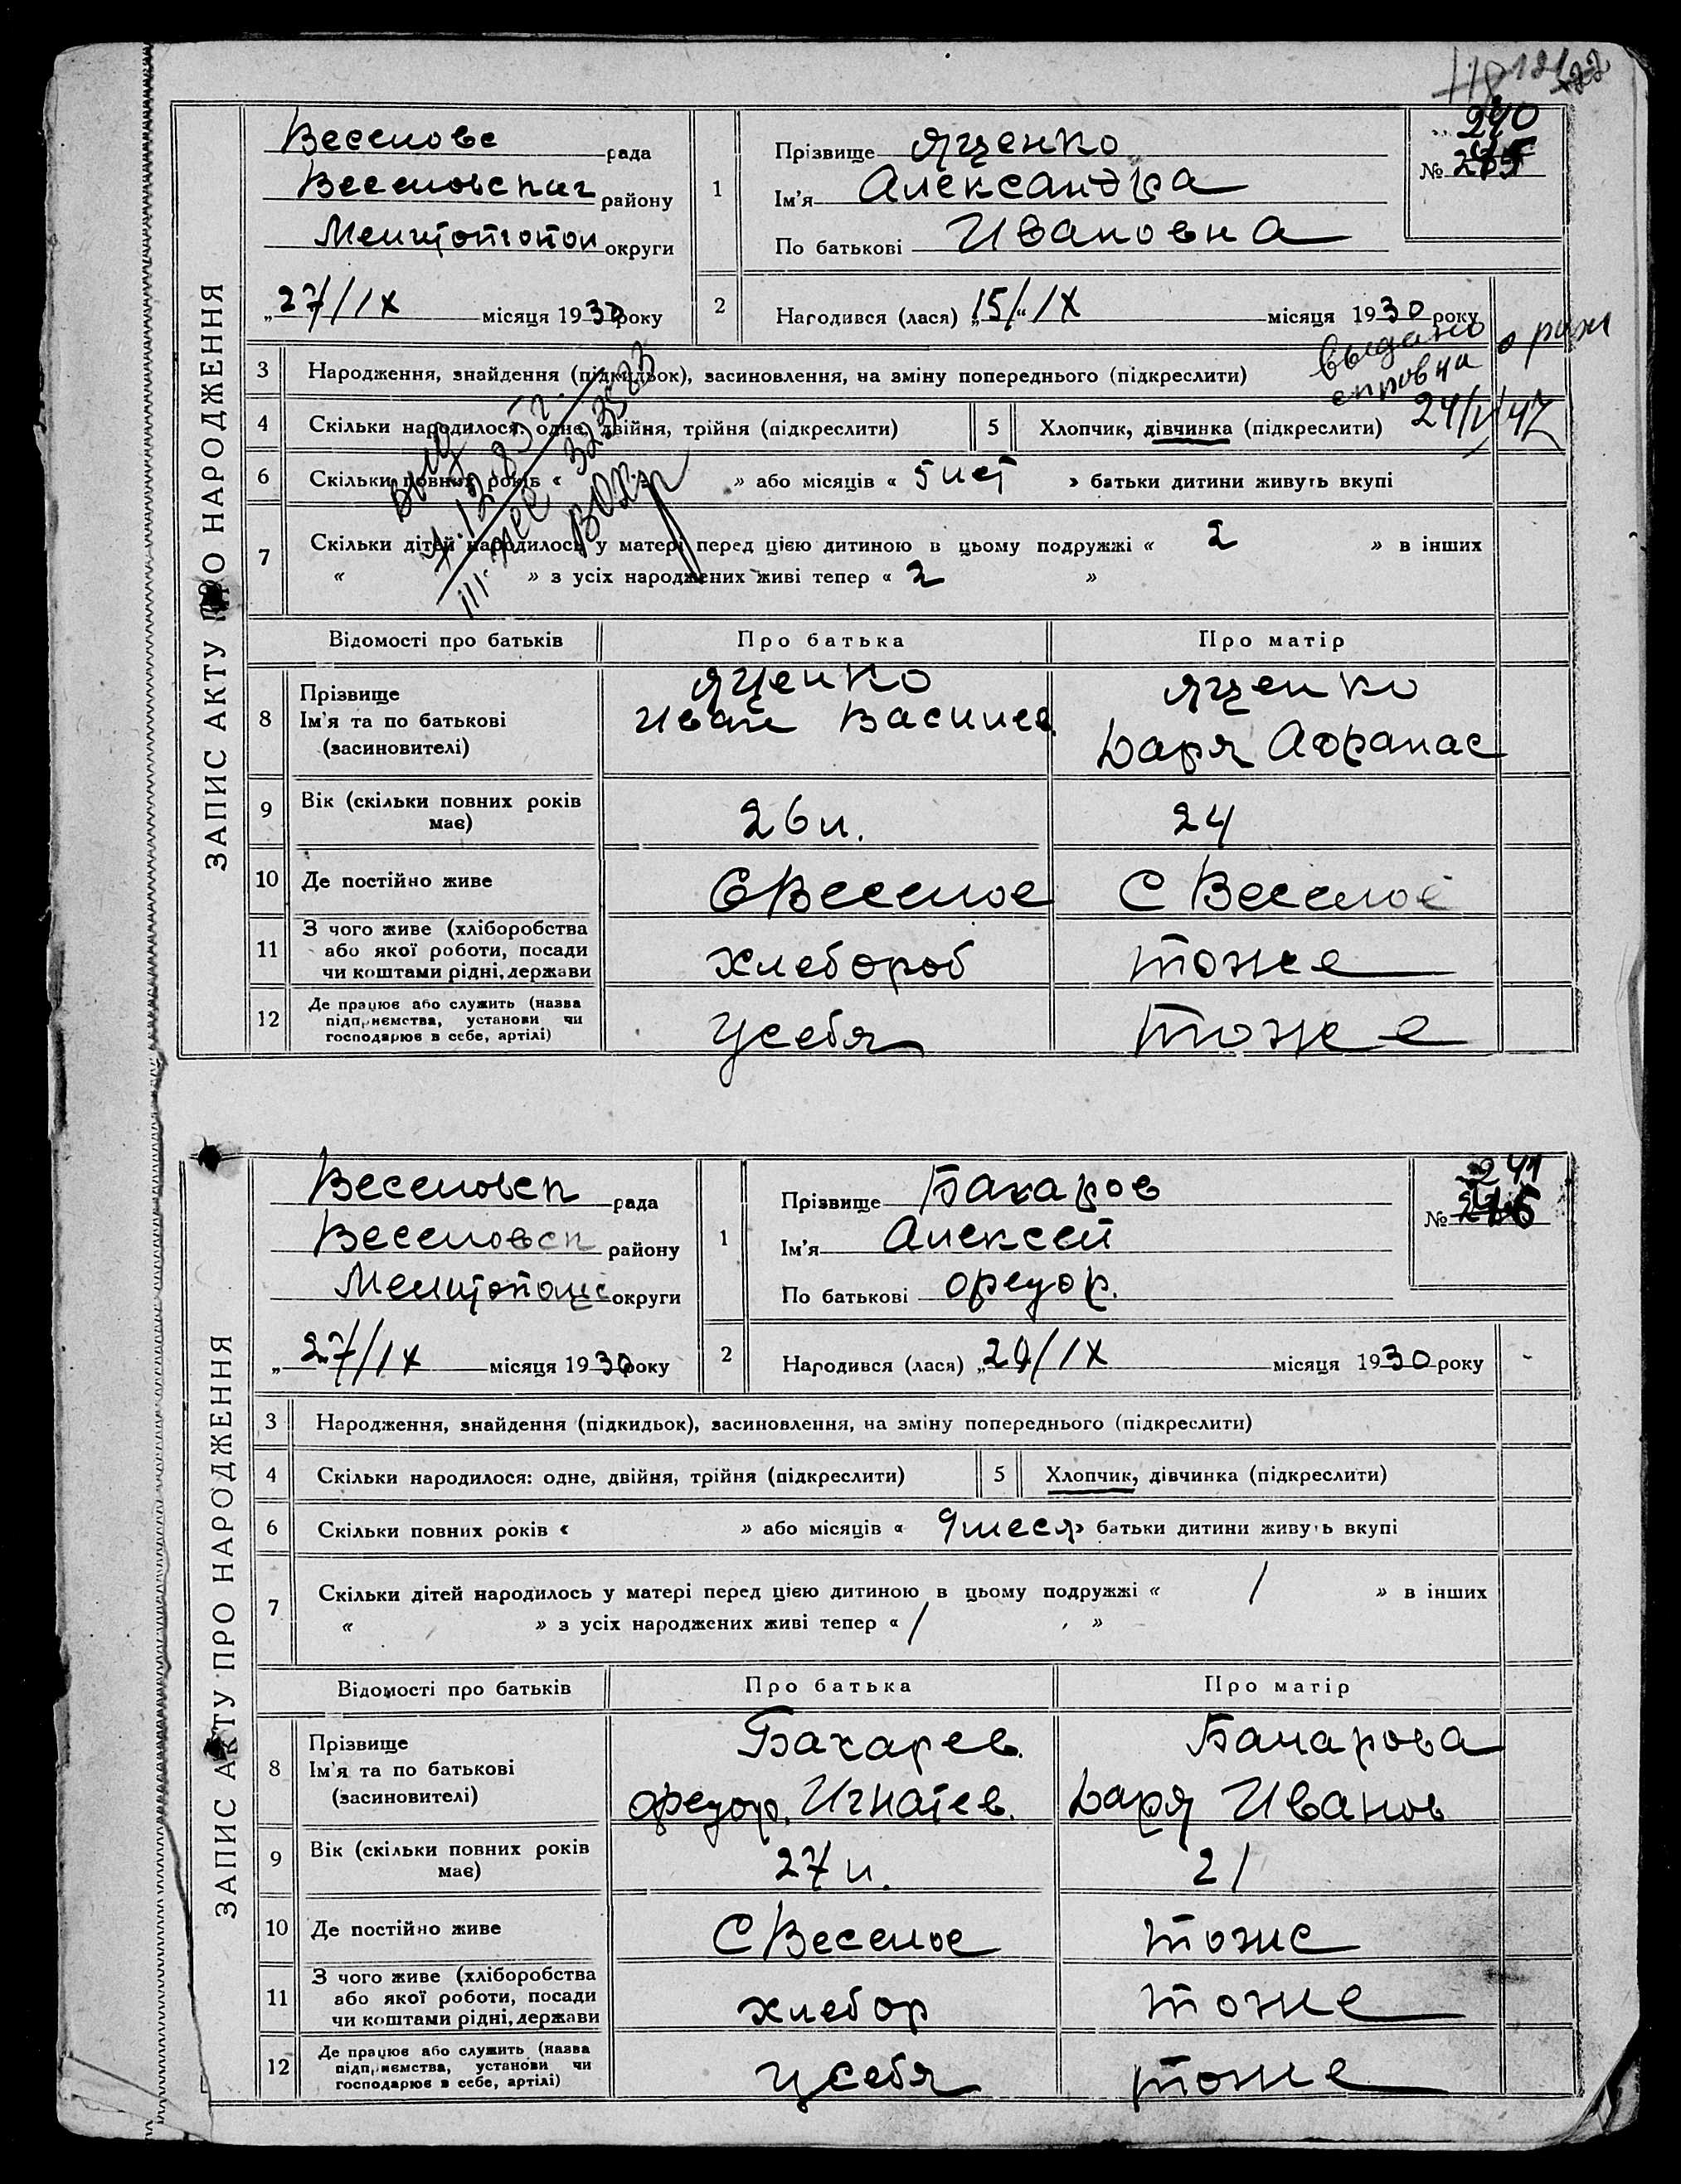 122
ЗАПИС АКТУ ПРО НАРОДЖЕННЯ
Веселовс рада
Веселовск района району
Мелитопол округи
„27/IX місяця 1930 року
1
Прізвище Яценко
Ім'я Александра
По батькові Ивановна
240
№ 245
2
Народився (лася) „15/"IX місяця 1930 року
выдано
справка о рож
24/V 47
3 Народження, знайдення (підкидьок), засиновлення, на зміну попереднього (підкреслити)
4 Скільки народилося: одне, двійня, трійня (підкреслити) 5 Хлопчик, дівчинка (підкреслити)
6 Скільки повних років « » або місяців « 5 лет » батьки дитини живуть вкупі
7 Скільки дітей народилось у матері перед цією дитиною в цьому подружжі « 2 » в інших
« » з усіх народжених живі тепер « 2 »
Відомості про батьків Про батька Про матір
8 Прізвище Ім'я та по батькові (засиновителі)
Яценко
Иван Василев.
Яценко
Даря Афанас
9 Вік (скільки повних років має) 26 л. 24
10 Де постійно живе С Веселое С Веселое
11 З чого живе (хліборобства або якої роботи, посади чи коштами рідні, держави хлебороб тоже
12 Де працює або служить (назва підприємства, установи чи господарює в себе, артілі) у себя тоже
ЗАПИС АКТУ ПРО НАРОДЖЕННЯ
Веселовск рада
Веселовск району
Мелитопольс округи
„27/IX місяця 1930 року
1
Прізвище Бахаров
Ім'я Алексей
По батькові Федор.
241
№ 246
2
Народився (лася) „20/IX місяця 1930 року
3 Народження, знайдення (підкидьок), засиновлення, на зміну попереднього (підкреслити)
4 Скільки народилося: одне, двійня, трійня (підкреслити) 5 Хлопчик, дівчинка (підкреслити)
6 Скільки повних років « » або місяців « 9 меся» батьки дитини живуть вкупі
7 Скільки дітей народилось у матері перед цією дитиною в цьому подружжі « / » в інших
« » з усіх народжених живі тепер « / »
Відомості про батьків Про батька Про матір
8 Прізвище Ім'я та по батькові (засиновителі)
Бахарев.
Федор. Игнатев.
Бахарова
Даря Иванов
9 Вік (скільки повних років має) 27 л. 21
10 Де постійно живе С Веселое тоже
11 З чого живе (хліборобства або якої роботи, посади чи коштами рідні, держави хлебор тоже
12 Де працює або служить (назва підприємства, установи чи господарює в себе, артілі) у себя тоже